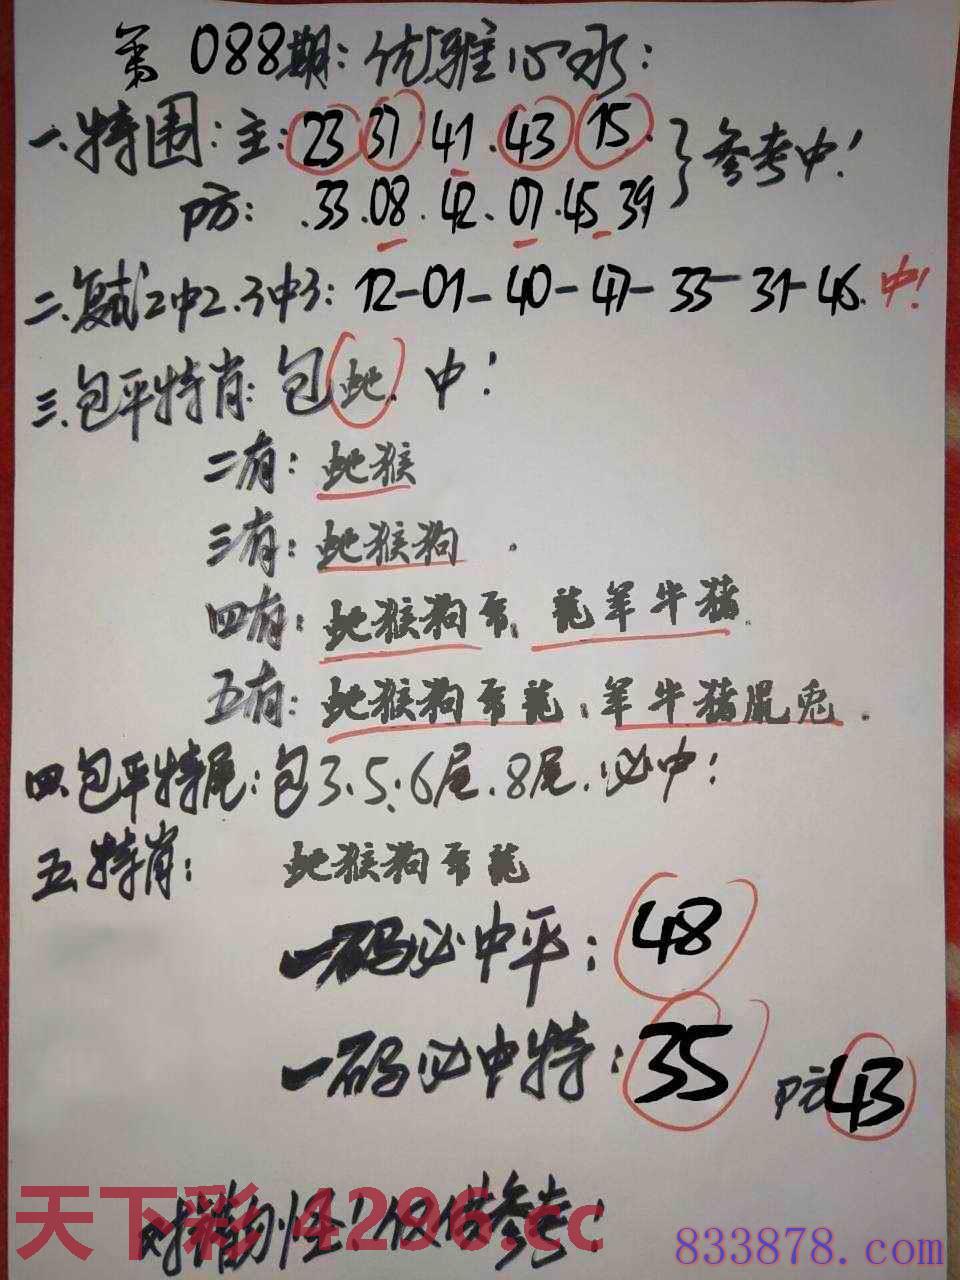 第088期: 优雅心水:
一.特围: 主: 23 37 41. 43 15. } 参考中!
防: .33.08.42.07.45 39
二.复式2中2.3中3: 12-01-40-47-33-31-46. 中!
三.包平特肖: 包蛇. 中!
二有: 蛇猴
三有: 蛇猴狗.
四有: 蛇猴狗 龍羊牛猪.
五有: 蛇猴狗 龍: 羊牛猪鼠兎.
四.包平特尾: 包3.5.6尾.8尾.必中!
五.特肖: 蛇猴狗 龍
一码必中平: 48
一码必中特: 35 防43
仅供参考!
天下彩 4296.cc
833878.com